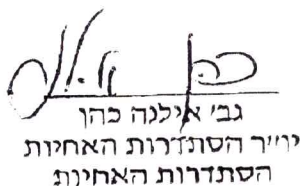 גב׳ אילנה כהן
יו״ר הסתדרות האחיות
הסתדרות האחיות